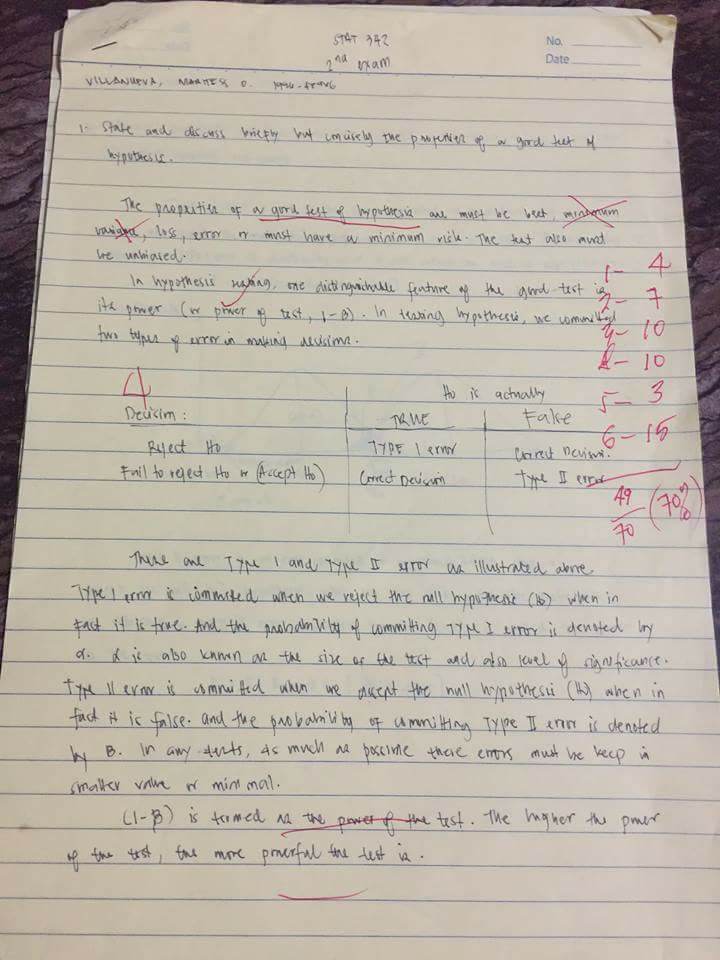 STAT 342
2nd exam
No.
Date
VILLANUEVA, O.
1. State and discuss briefly but concisely the properties of a good test of
hypothesis.
The properties of a good test of hypothesis are must be best, minimum
variance, loss, error or must have a minimum risk. The test also must
be unbiased.
In hypothesis testing, one distinguishable feature of the good test is
its power (or power of test, 1-β). In testing hypothesis, we committed
two types of error in making decisions.
1- 4
2- 7
3- 10
4- 10
5- 3
6- 15
49
70
(70%)
4
Ho is actually
Decision: TRUE False
Reject Ho TYPE I error Correct Decision.
Fail to reject Ho or (Accept Ho) Correct Decision Type II error
There are Type I and Type II error as illustrated above.
Type I error is committed when we reject the null hypothesis (Ho) when in
fact it is true. And the probability of committing Type I error is denoted by
α. α is also known as the size of the test and also level of significance.
Type II error is committed when we accept the null hypothesis (Ho) when in
fact it is false. and the probability of committing Type II error is denoted
by B. In any tests, as much as possible these errors must be keep in
smaller value or minimal.
(1-β) is termed as the power of the test. The higher the power
of the test, the more powerful the test is.